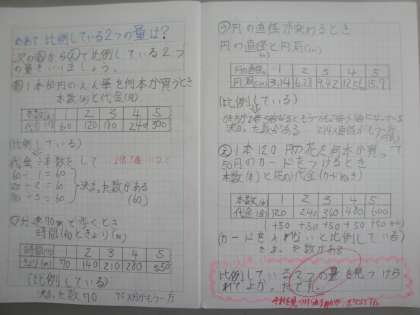 めあて 比例している2つの量は?
次のあからえで比例している2つ
の量をいいましょう。
あ 1本60円のえん筆を何本か買うとき
本数(本)と代金(円)
本数(本) 1 2 3 4 5
代金(円) 60 120 180 240 300
(比例している)
代金÷本数をして
60÷1=60
120÷2=60
180÷3=60
決まった数がある
(60)
分速70mで歩くとき
時間(分)ときょり(m)
時間(分) 1 2 3 4 5
きょり(m) 70 140 210 280 350
(比例している)
決まった数70
円の直径が変わるとき
円の直径と円周(cm)
円の直径 1 2 3 4 5
円周(cm) 3.14 6.28 9.42 12.56 15.7
(比例している)
え 1本120円の花を何本か買って
50円のカードをつけるとき
本数(本)と花の代金
本数(本) 1 2 3 4 5
代金(円) 120 240 360 480 600
+50 +50 +50 +50 +50
カードを入れないと比例している
比例している2つの量を見つけら
れてよかったです。